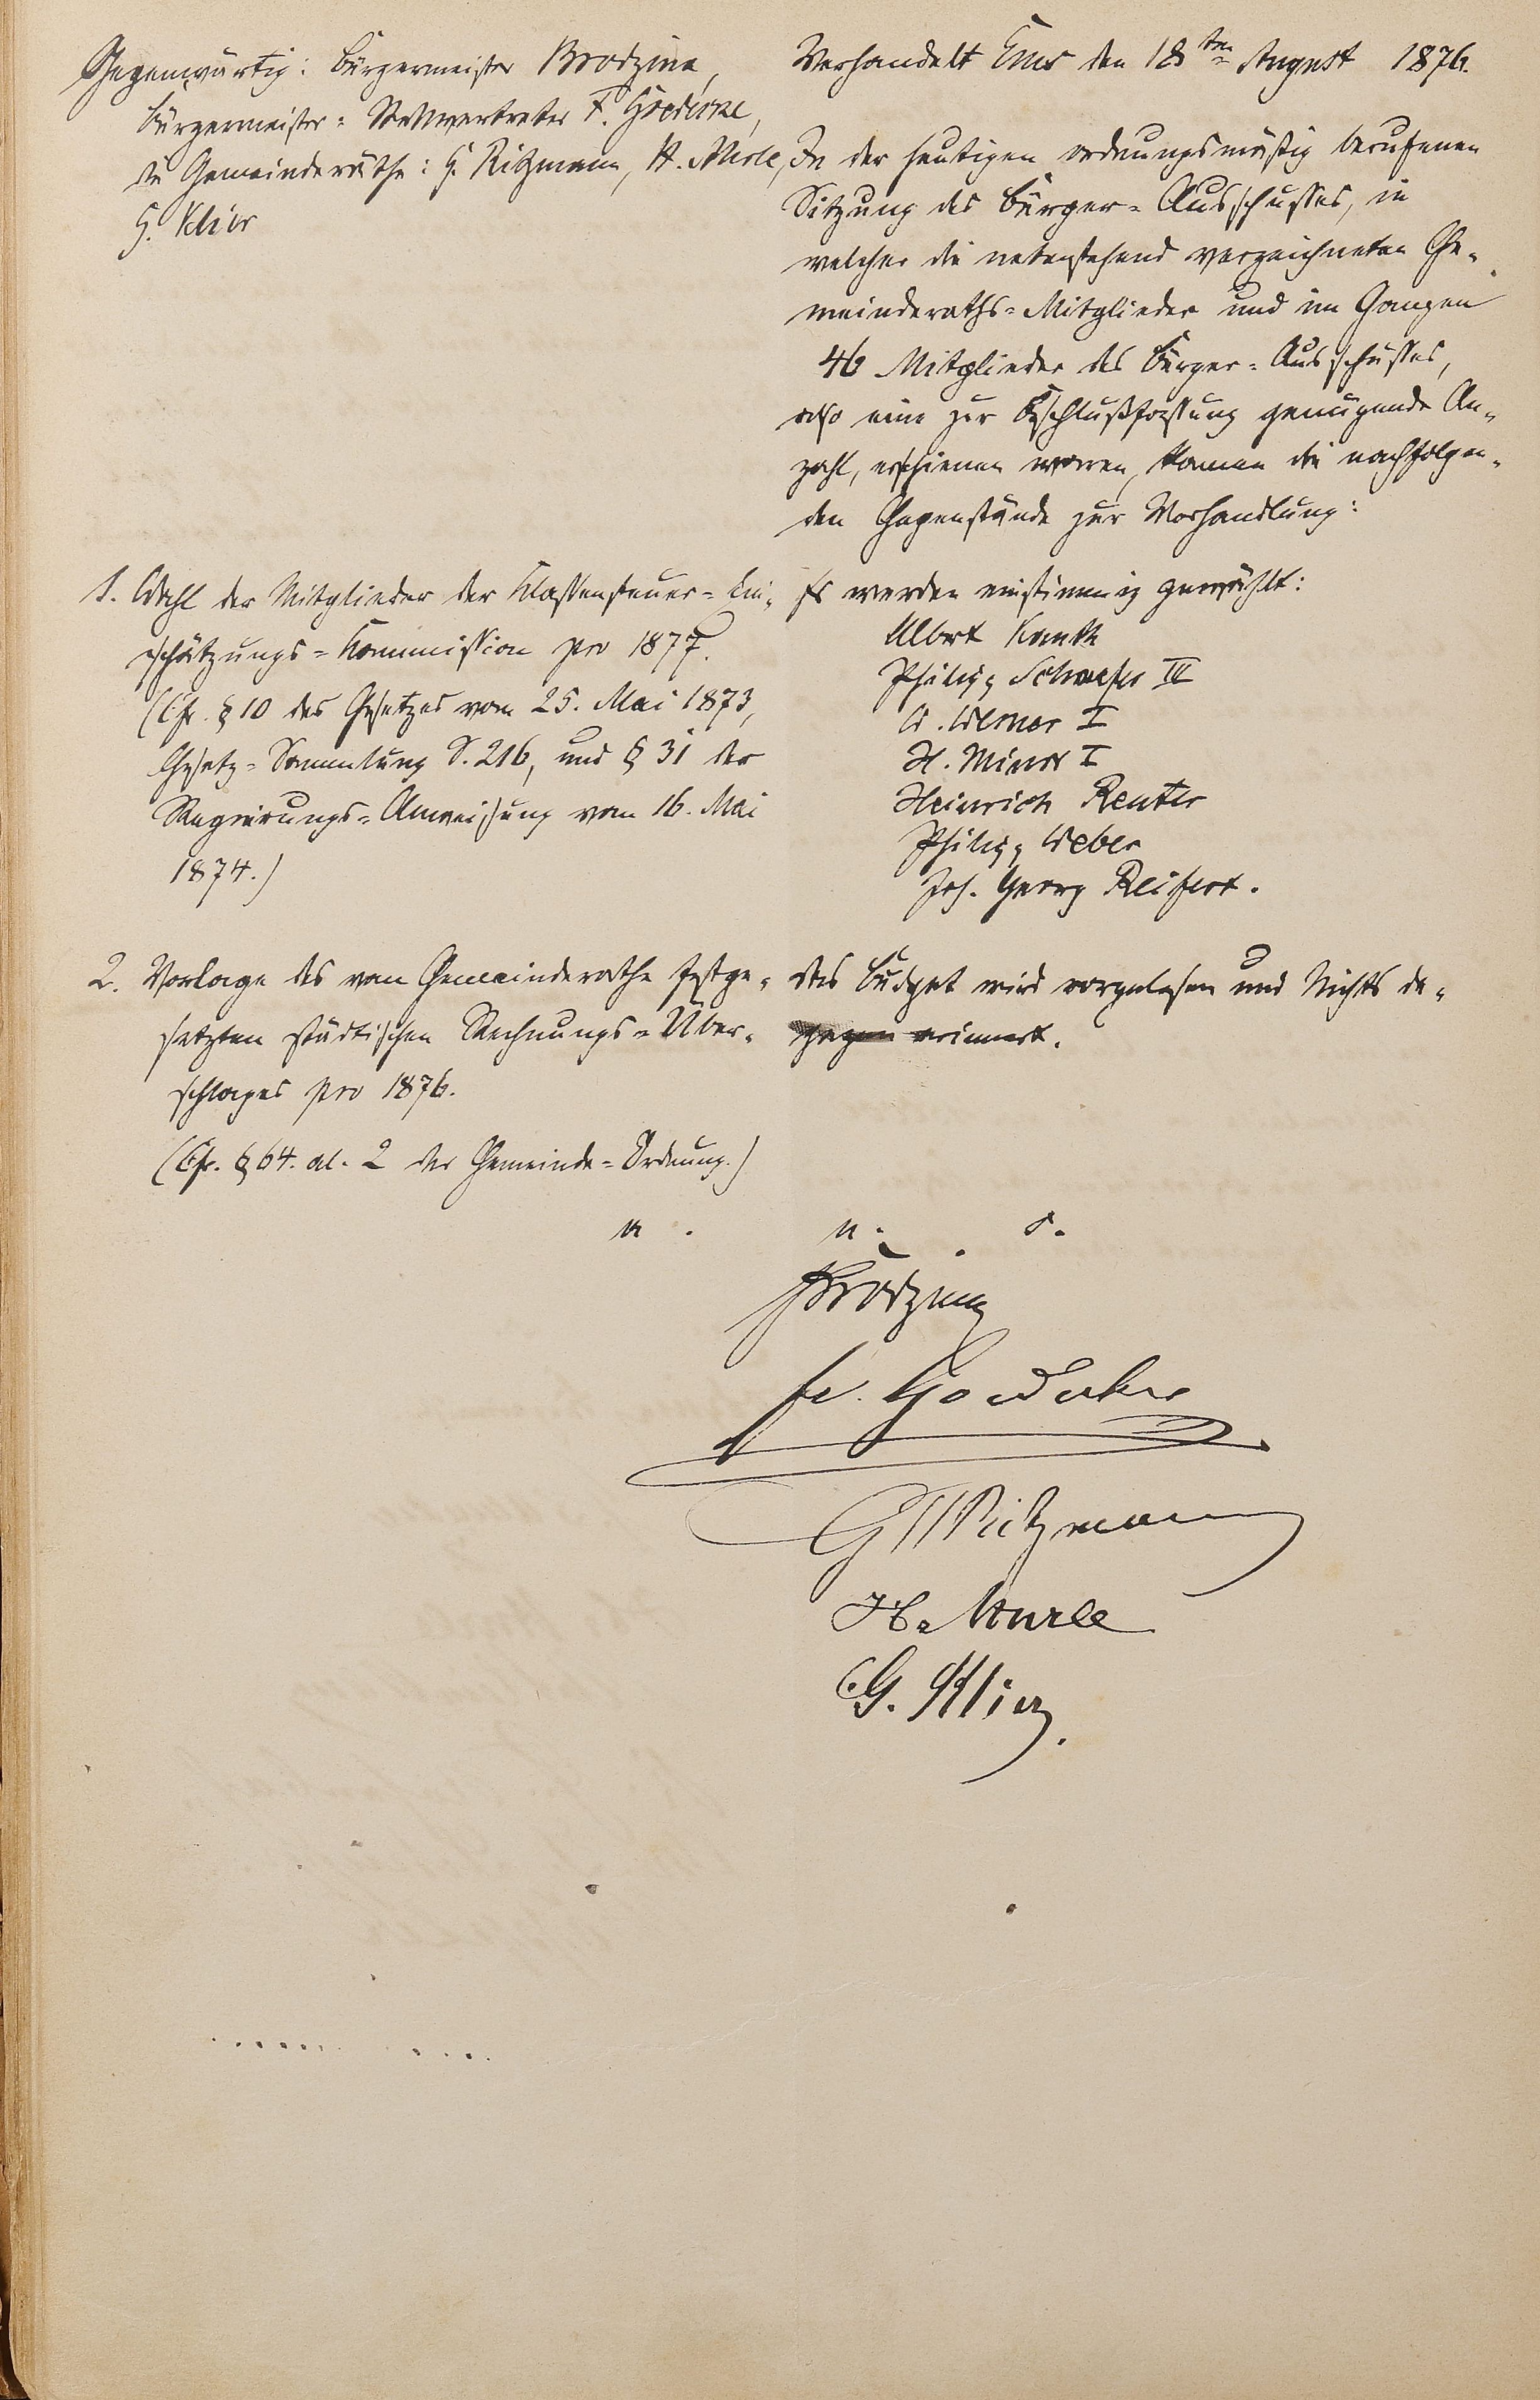 Gegenwärtig: Bürgermeister Brodzina,
Bürgermeister-Stellvertreter F. Goedecke,
die Gemeinderäthe: G. Ritzmann, H. Merle,
G. Klier
Verhandelt Ems den 18ten August 1876.
In der heutigen ordnungsmäßig berufenen
Sitzung des Bürger-Ausschusses, in
welcher die nebenstehend verzeichneten Ge-
meinderaths-Mitglieder und im Ganzen
46 Mitglieder des Bürger-Ausschusses,
also eine zur Beschlußfassung genügende An-
zahl, erschienen waren, kamen die nachfolgen-
den Gegenstände zur Verhandlung:
1. Wahl der Mitglieder der Klassensteuer-Ein-
schätzungs-Kommission pro 1877.
(Cfr. § 10 des Gesetzes vom 25. Mai 1873,
Gesetz-Sammlung S. 216, und § 31 der
Regierungs-Anweisung vom 16. Mai
1874.)
Es werden einstimmig gewählt:
Albert
Philipp Schaefer III
W. Werner I
H. I
Heinrich Reuter
Philipp Weber
Joh. Georg Reifert.
2. Vorlage des vom Gemeinderathe festge-
setzten städtischen Rechnungs-Über-
schlages pro 1876.
(Cfr. § 64. al. 2 der Gemeinde-Ordnung.)
Das Budget wird vorgelesen und Nichts da-
gegen erinnert.
u. s.
Brodzina
Fr. Goedecke
G Ritzmann
H. Merle
G. Klier.